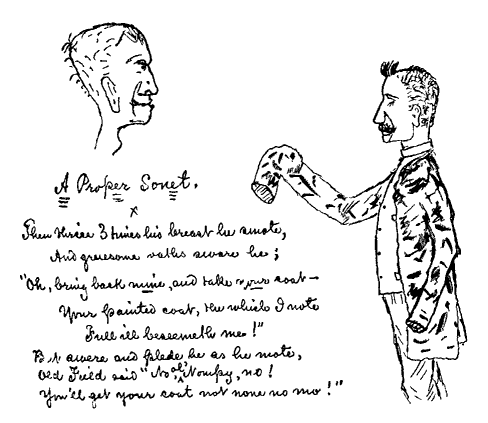 A Proper Sonet.
x
Then thrice 3 times his breast he smote,
And gruesome oaths swore he;
"Oh, bring back mine, and take your coat—
Your painted coat, the which I note
Full ill beseemeth me!"
But swere and plede he as he mote,
Old Field said "No ole Nompy, no!
You'll get your coat not none no mo!"